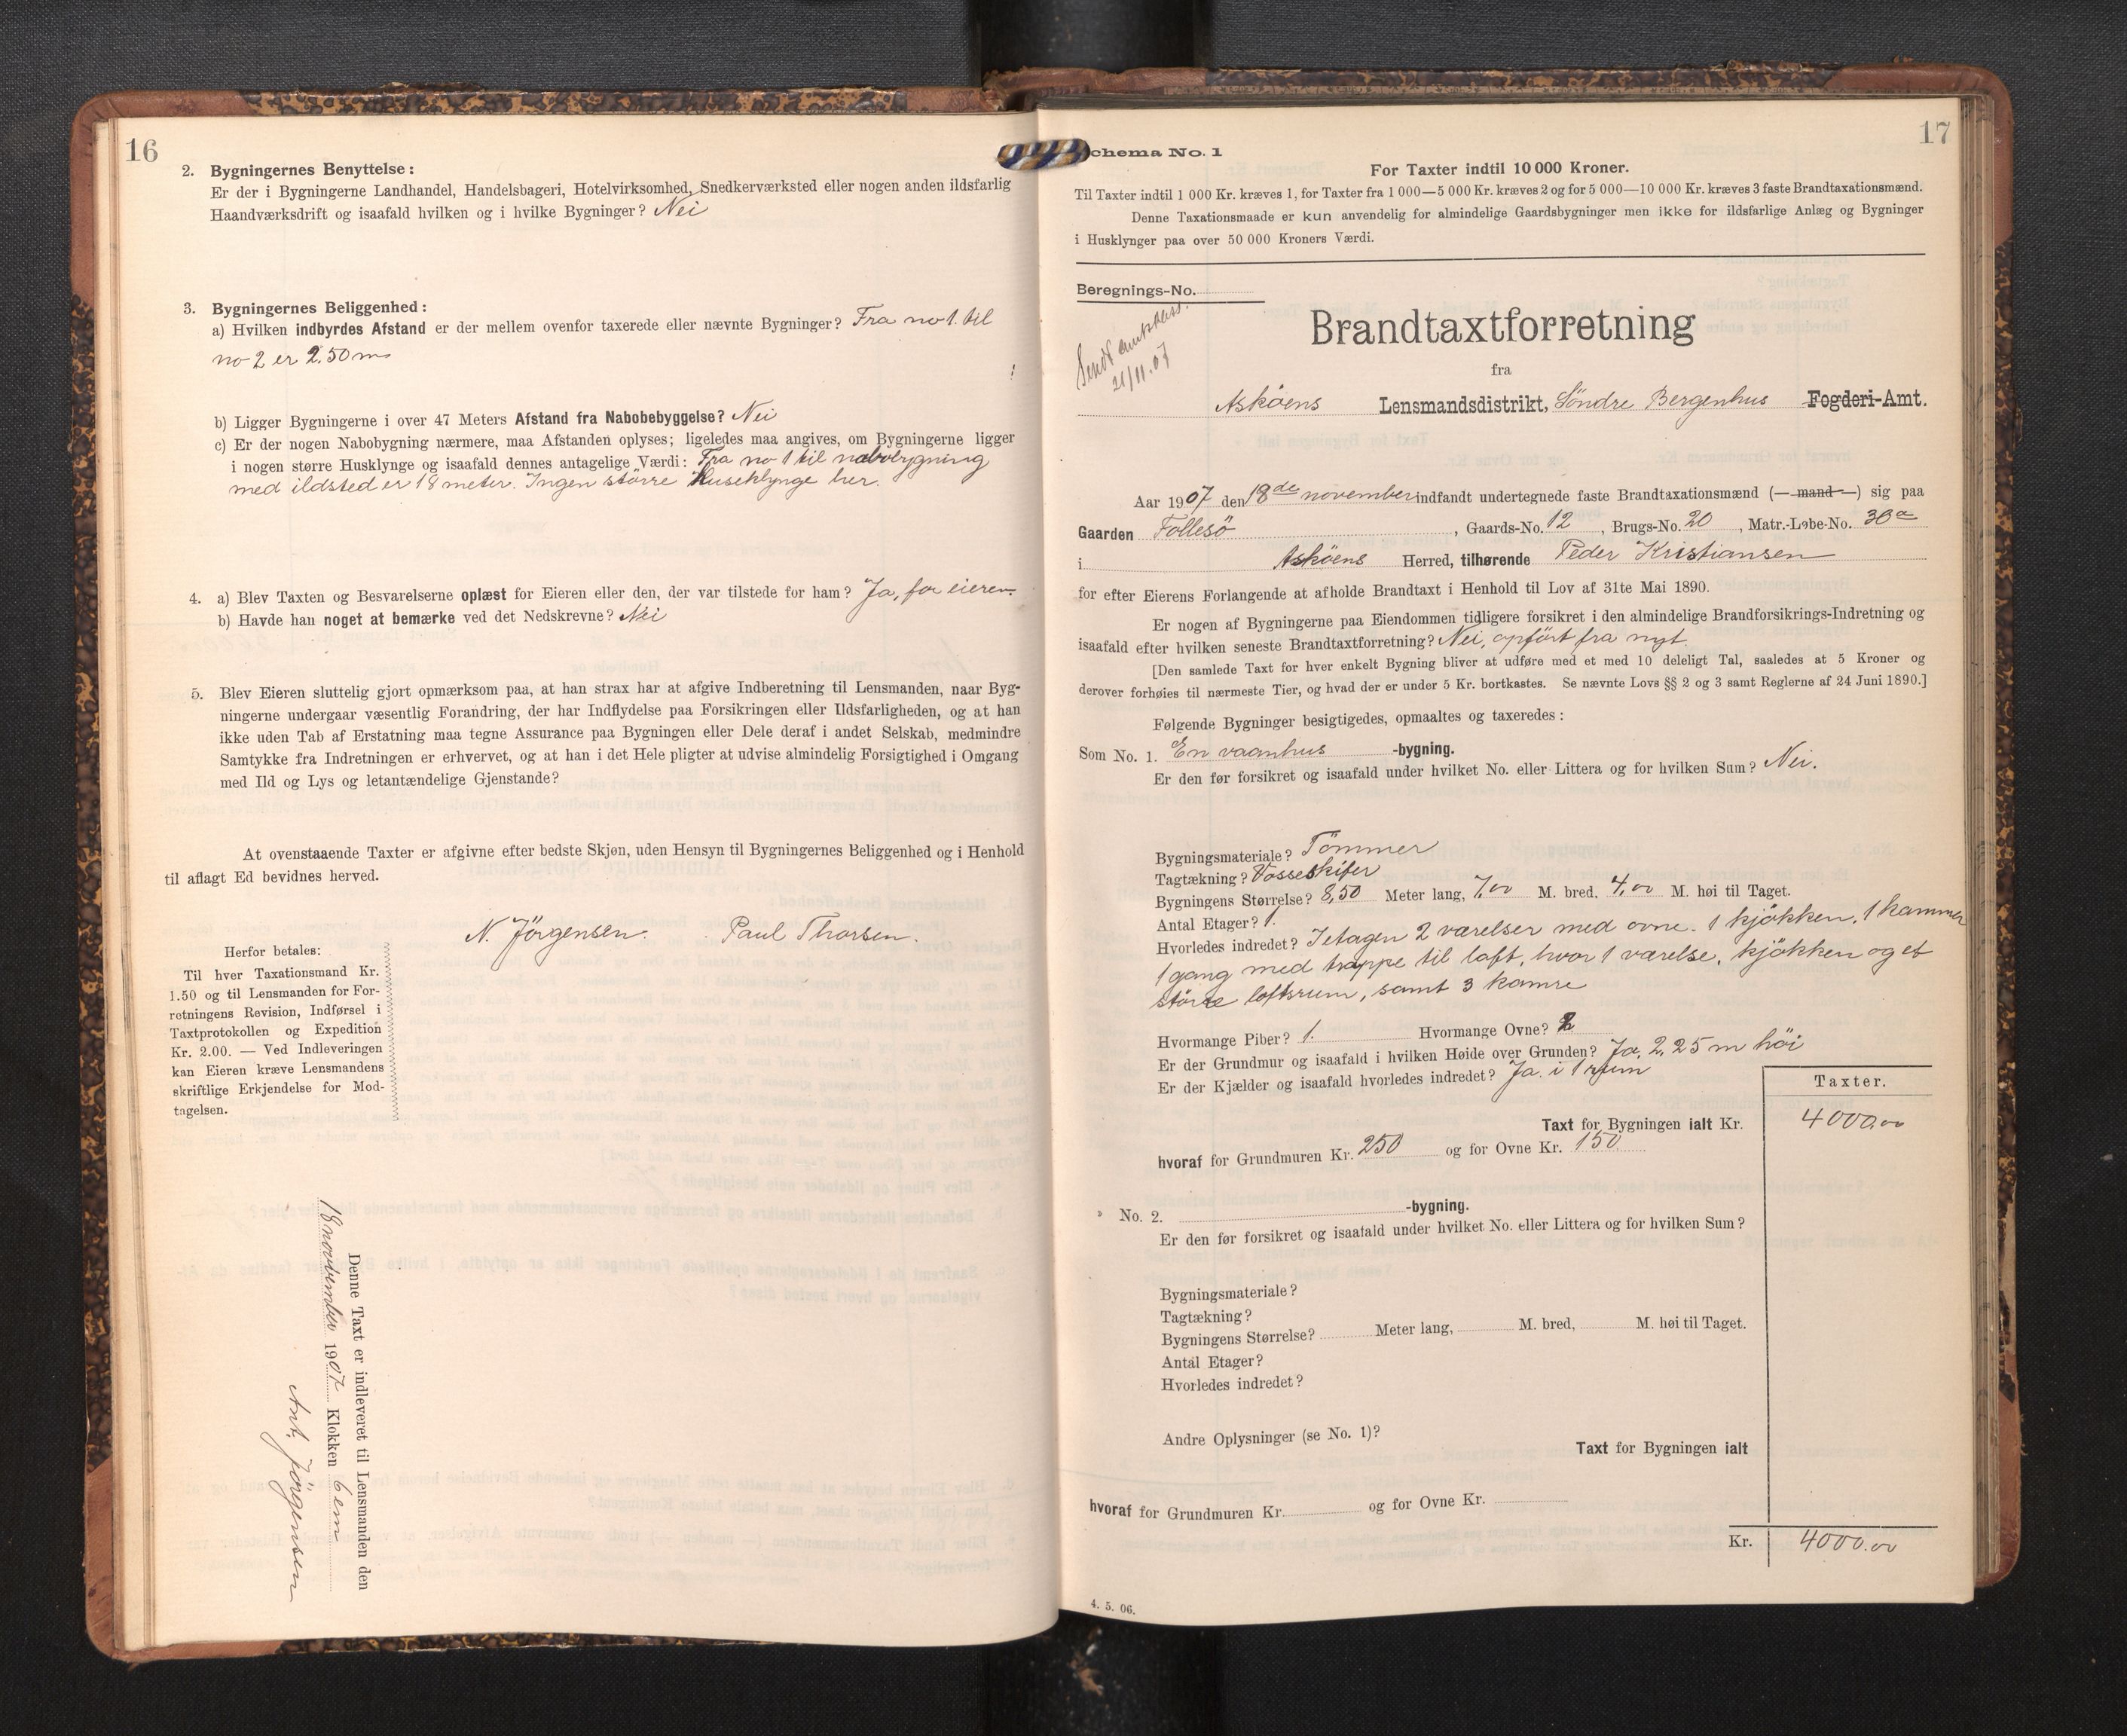 16
2. Bygningernes Benyttelse:
Er der i Bygningerne Landhandel, Handelsbageri, Hotelvirksomhed, Snedkerværksted eller nogen anden ildsfarlig
Haandværksdrift og isaafald hvilken og i hvilke Bygninger? Nei
3. Bygningernes Beliggenhed:
a) Hvilken indbyrdes Afstand er der mellem ovenfor taxerede eller nævnte Bygninger? Fra no 1. til
no 2 er 2.50 m
b) Ligger Bygningerne i over 47 Meters Afstand fra Nabobebyggelse? Nei
c) Er der nogen Nabobygning nærmere, maa Afstanden oplyses; ligeledes maa angives, om Bygningerne ligger
i nogen større Husklynge og isaafald dennes antagelige Værdi: Fra no 1 til nabobygning
med ildsted er 18 meter. Ingen större Huseklynge her.
4. a) Blev Taxten og Besvarelserne oplæst for Eieren eller den, der var tilstede for ham? Ja, for eieren.
b) Havde han noget at bemærke ved det Nedskrevne? Nei
5. Blev Eieren sluttelig gjort opmærksom paa, at han strax har at afgive Indberetning til Lensmanden, naar Byg-
ningerne undergaar væsentlig Forandring, der har Indflydelse paa Forsikringen eller Ildsfarligheden, og at han
ikke uden Tab af Erstatning maa tegne Assurance paa Bygningen eller Dele deraf i andet Selskab, medmindre
Samtykke fra Indretningen er erhvervet, og at han i det Hele pligter at udvise almindelig Forsigtighed i Omgang
med Ild og Lys og letantændelige Gjenstande?
At ovenstaaende Taxter er afgivne efter bedste Skjøn, uden Hensyn til Bygningernes Beliggenhed og i Henhold
til aflagt Ed bevidnes herved.
N. Jörgensen. Paul Thorsen.
Herfor betales:
Til hver Taxationsmand Kr.
1.50 og til Lensmanden for For-
retningens Revision, Indførsel i
Taxtprotokollen og Expedition
Kr. 2.00. — Ved Indleveringen
kan Eieren kræve Lensmandens
skriftlige Erkjendelse for Mod-
tagelsen.
Denne Taxt er indleveret til Lensmanden den
18 november 1907 Klokken 6 em
Ant. Jörgensen
17
chema No. 1
For Taxter indtil 10 000 Kroner.
Til Taxter indtil 1 000 Kr. kræves 1, for Taxter fra 1 000—5 000 Kr. kræves 2 og for 5 000—10 000 Kr. kræves 3 faste Brandtaxationsmænd.
Denne Taxationsmaade er kun anvendelig for almindelige Gaardsbygninger men ikke for ildsfarlige Anlæg og Bygninger
i Husklynger paa over 50 000 Kroners Værdi.
Beregnings-No.
Sendt
21/11.07
Brandtaxtforretning
fra
Asköens Lensmandsdistrikt, Söndre Bergenhus Fogderi-Amt.
Aar 1907 den 18de november indfandt undertegnede faste Brandtaxationsmænd (— mand —) sig paa
Gaarden Follesö, Gaards-No. 12, Brugs-No. 20, Matr.-Løbe-No. 30a
i Asköens Herred, tilhørende Peder Kristiansen
for efter Eierens Forlangende at afholde Brandtaxt i Henhold til Lov af 31te Mai 1890.
Er nogen af Bygningerne paa Eiendommen tidligere forsikret i den almindelige Brandforsikrings-Indretning og
isaafald efter hvilken seneste Brandtaxtforretning? Nei, opfört fra nyt
[Den samlede Taxt for hver enkelt Bygning bliver at udføre med et med 10 deleligt Tal, saaledes at 5 Kroner og
derover forhøies til nærmeste Tier, og hvad der er under 5 Kr. bortkastes. Se nævnte Lovs §§ 2 og 3 samt Reglerne af 24 Juni 1890.]
Følgende Bygninger besigtigedes, opmaaltes og taxeredes:
Som No. 1. En vaanhus -bygning.
Er den før forsikret og isaafald under hvilket No. eller Littera og for hvilken Sum? Nei.
Bygningsmateriale? Tömmer
Tagtækning? Vosseskifer
Bygningens Størrelse? 8,50 Meter lang, 7,00 M. bred, 4,00 M. høi til Taget.
Antal Etager? 1.
Hvorledes indredet? I etagen 2 værelser med ovne. 1 kjökken. 1 kammer
1 gang med trappe til loft, hvor 1 værelse, kjökken og et
större loftsrum, samt 3 kamre
Hvormange Piber? 1. Hvormange Ovne? 2
Er der Grundmur og isaafald i hvilken Høide over Grunden? Ja, 2,25 m höi
Er der Kjælder og isaafald hvorledes indredet? Ja. i 1 rum
Taxter.
Taxt for Bygningen ialt Kr. 4000,00
hvoraf for Grundmuren Kr. 250 og for Ovne Kr. 150
» No. 2. -bygning.
Er den før forsikret og isaafald under hvilket No. eller Littera og for hvilken Sum?
Bygningsmateriale?
Tagtækning?
Bygningens Størrelse? Meter lang, M. bred, M. høi til Taget.
Antal Etager?
Hvorledes indredet?
Andre Oplysninger (se No. 1)?
Taxt for Bygningen ialt
hvoraf for Grundmuren Kr. og for Ovne Kr.
Kr. 4000.00
4. 5. 06.